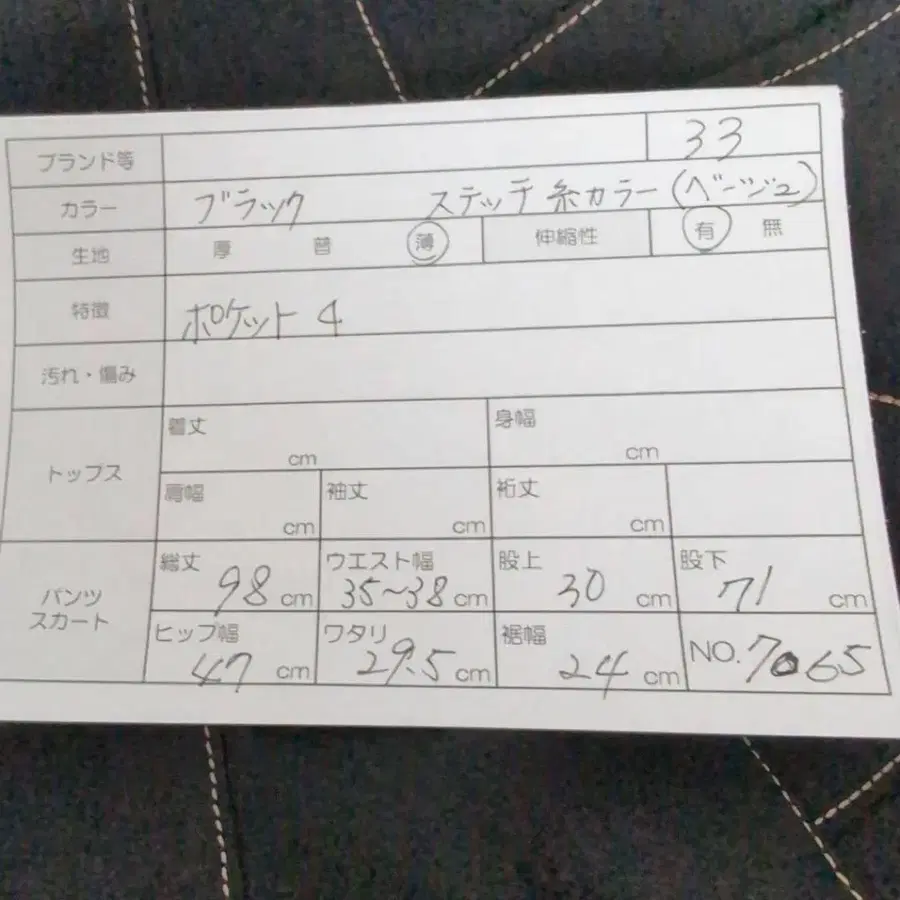 ブランド等 33
カラー ブラック ステッチ糸カラー(ベージュ)
生地 厚 普 薄 伸縮性 有 無
特徴 ポケット 4
汚れ・傷み
トップス
着丈 cm 身幅 cm
肩幅 cm 袖丈 cm 裄丈 cm
パンツ
スカート
総丈 98 cm ウエスト幅 35~38 cm 股上 30 cm 股下 71 cm
ヒップ幅 47 cm ワタリ 29.5 cm 裾幅 24 cm NO. 7065